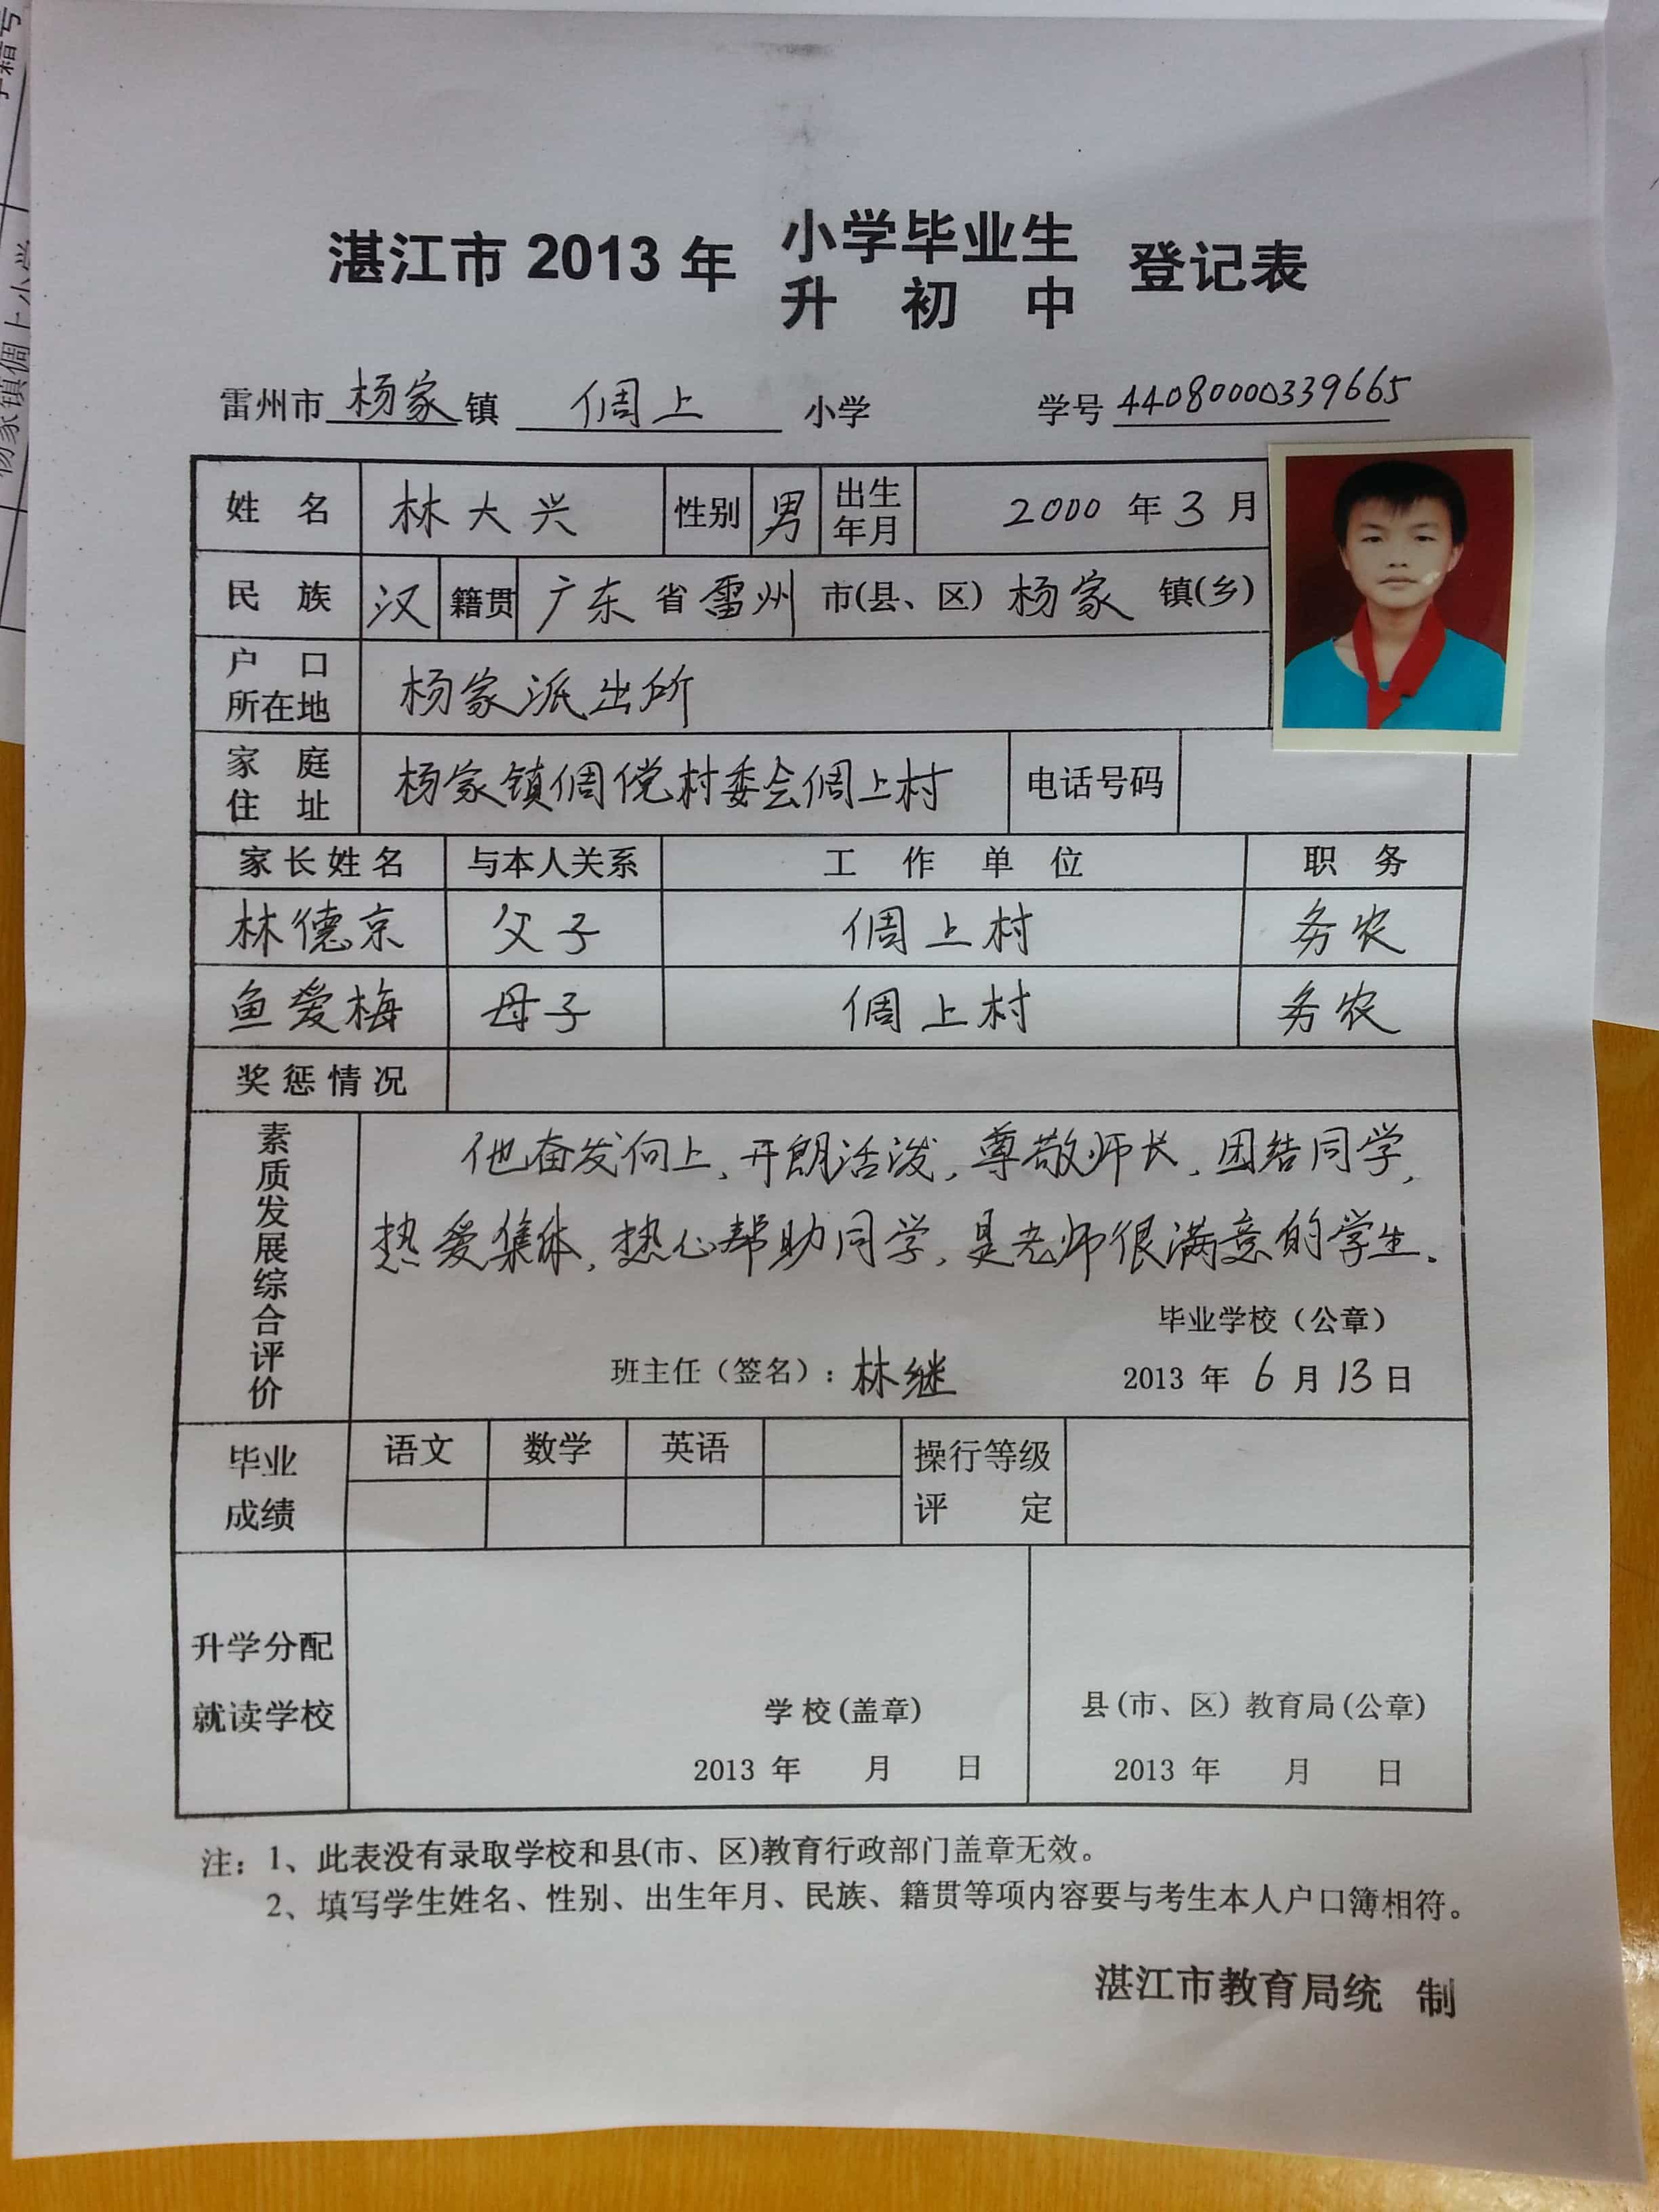 湛江市 2013 年 小学毕业生 登记表
升 初 中
雷州市 杨家 镇 倜上 小学 学号 44080000339665
姓 名 林大兴 性别 男 出生年月 2000 年 3 月
民 族 汉 籍贯 广东 省 雷州 市(县、区) 杨家 镇(乡)
户 口 所在地 杨家派出所
家 庭 住 址 杨家镇倜傥村委会倜上村 电话号码
家长姓名 与本人关系 工 作 单 位 职 务
林德京 父子 倜上村 务农
鱼爱梅 母子 倜上村 务农
奖惩情况
素质发展综合评价
他奋发向上,开朗活泼,尊敬师长,团结同学,
热爱集体,热心帮助同学,是老师很满意的学生。
毕业学校(公章)
班主任(签名):林继 2013 年 6 月 13 日
毕业成绩 语文 数学 英语 操行等级评 定
升学分配
就读学校
学校(盖章) 县(市、区)教育局(公章)
2013 年 月 日 2013 年 月 日
注:1、此表没有录取学校和县(市、区)教育行政部门盖章无效。
2、填写学生姓名、性别、出生年月、民族、籍贯等项内容要与考生本人户口簿相符。
湛江市教育局统 制
杨家镇倜上小学